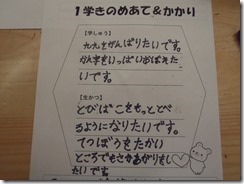 1学きのめあて&かかり
【学しゅう】
九九をがんばりたいです。
かん字をいっぱいおぼえた
いです。
【生かつ】
とびばこをもっととべ
るようになりたいです。
てつぼうをたかい
ところでもさかあがりをし
たいです